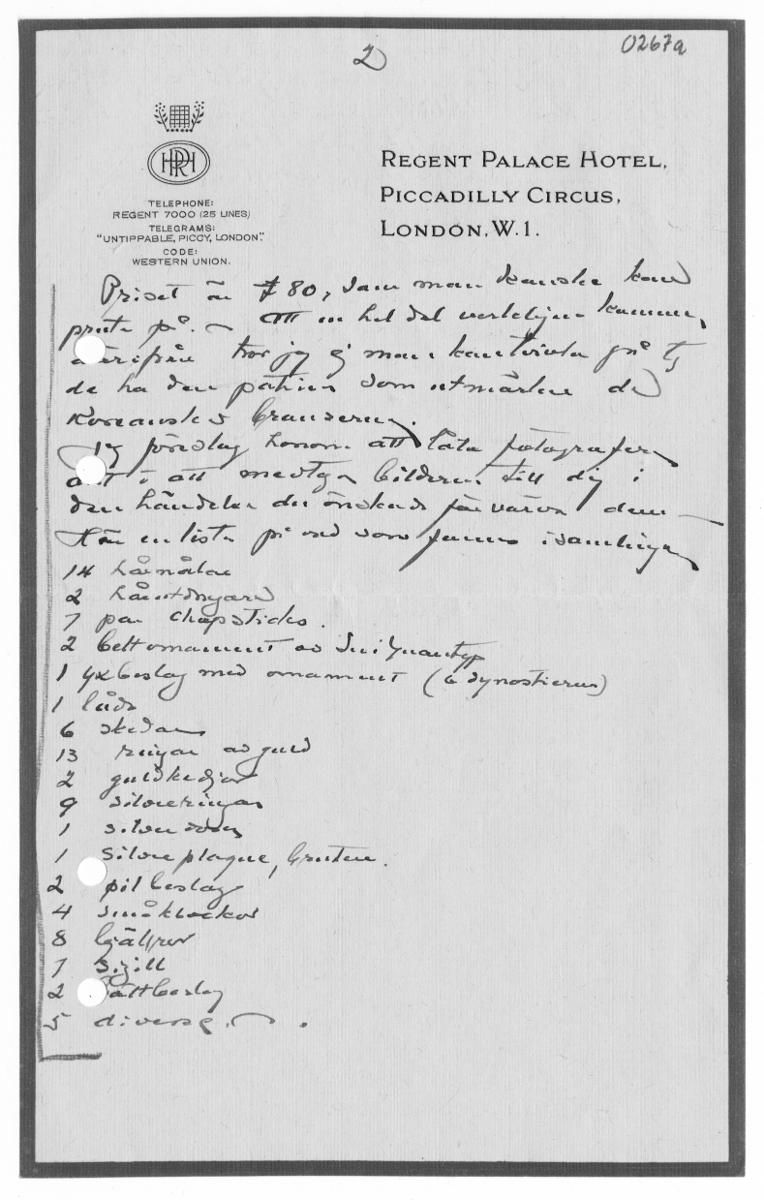 2
0267a
HRPH
TELEPHONE:
REGENT 7000 (25 LINES)
TELEGRAMS:
"UNTIPPABLE, PICCY, LONDON".
CODE:
WESTERN UNION.
REGENT PALACE HOTEL,
PICCADILLY CIRCUS,
LONDON, W.1.
Priset är £ 80, som man kanske kan
pruta på. – Att en hel del verkligen kommer
därifrån tror jag ej man kan tvivla på ty
de ha den patina som utmärker de
Koreanska bronserna.
Jag föreslog honom att låta fotografera
allt o att medtaga bilderna till dig i
den händelse du önskade förvärva dem –
Här en lista på vad som finns i samlingen
14 hårnålar
2
7 par chopsticks.
2 beltornament av Sui Yuantyp
1 yxbeslag med ornament (6 dynastierna)
1 låda
6 skedar
13 ringar av guld
2 guldkedjor
9 silverringar
1 silver
1 Silver plaque, bruten.
2 pilbeslag
4 småklockor
8 bjällror
7 Sigill
2
5 diverse. – .